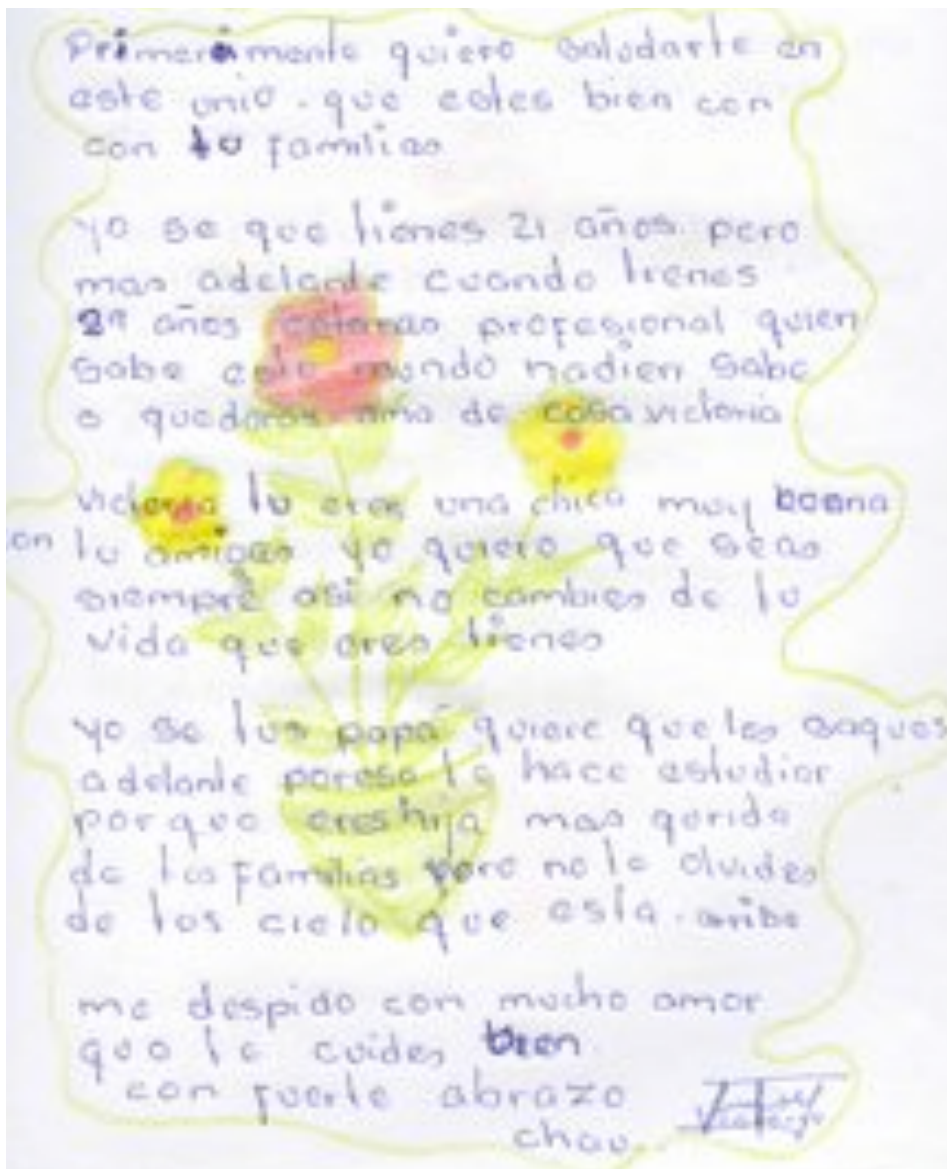 Primeramente quiero saludarte en
este unio. que estes bien con
con tu familias
yo se que tienes 21 años. pero
mas adelante cuando tienes
29 años estaras profesional quien
sabe este mundo nadien sabe
o quedaras ama de casa victoria
victoria tu eres una chica muy buena
on tu amigas yo quiero que seas
siempre asi no cambies de tu
vida que eres tienes
yo se tus papa quiere que les saques
adelante poreso te hace estudiar
porque ereshija mas qerida
de tus familias pero no te olvides
de tus cielo que esta. aribe
me despido con mucho amor
que te cuides bien
con fuerte abrazo
chau..